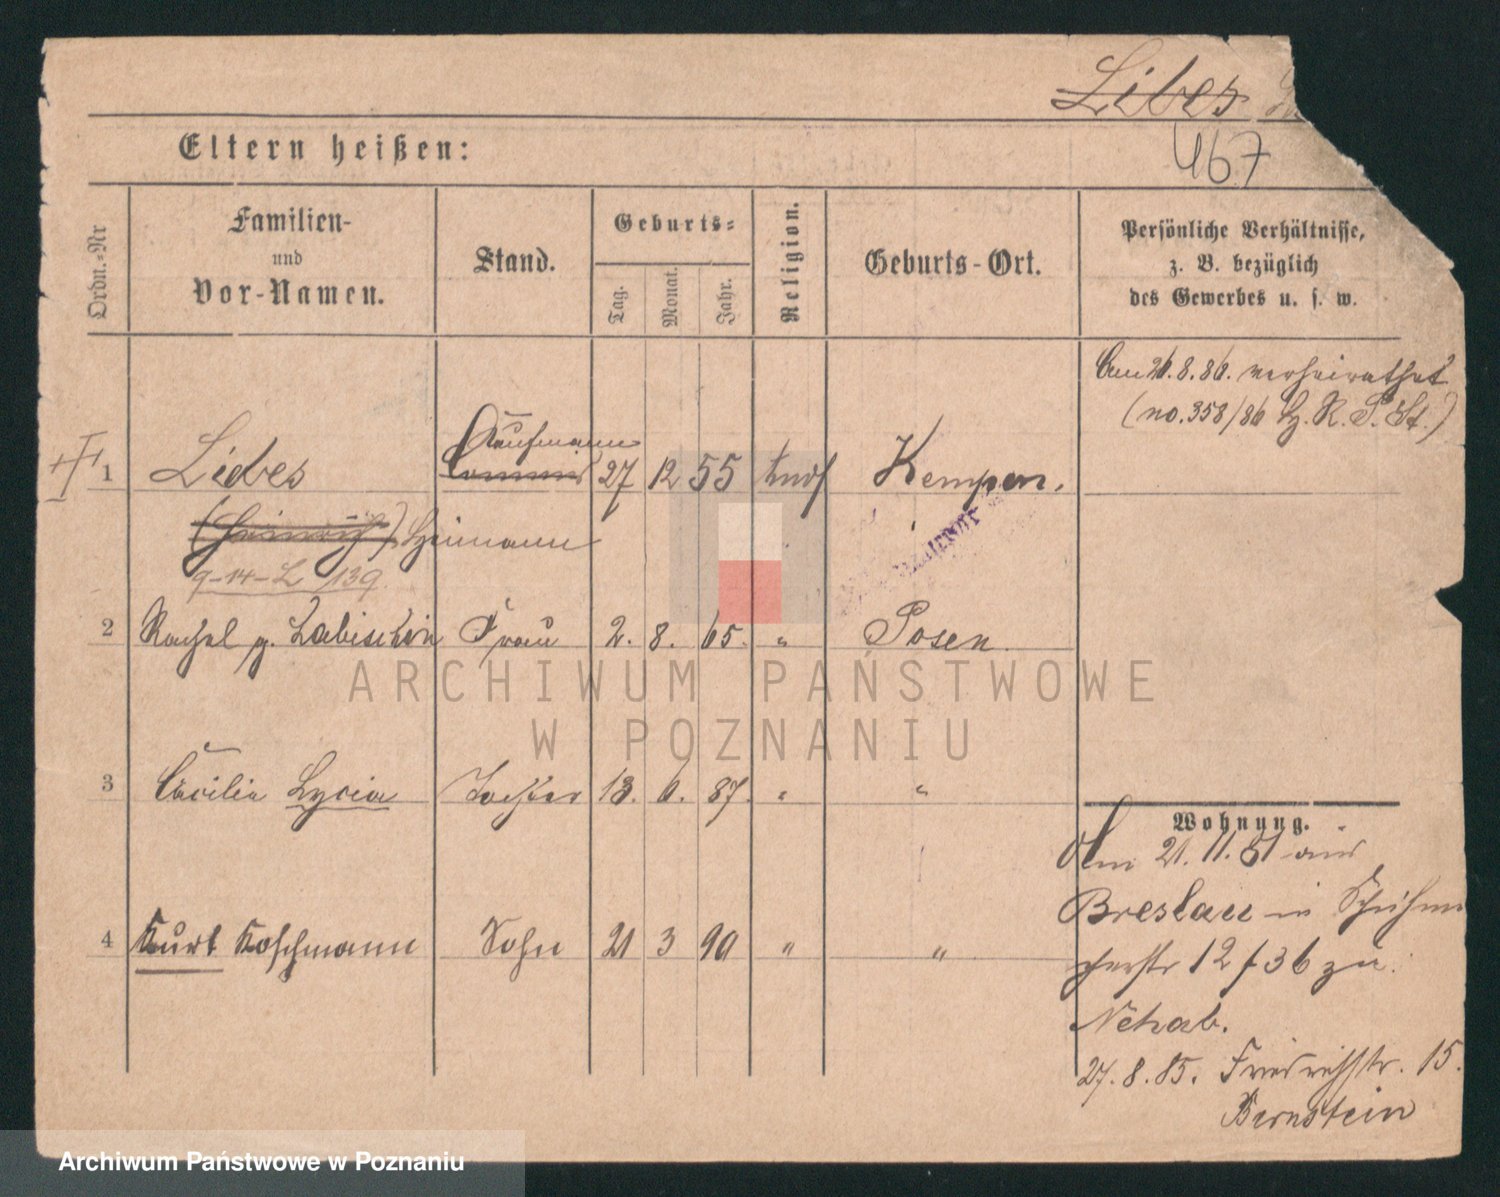 Libes
467
Eltern heißen:
Ordn.-Nr
Familien-
und
Vor-Namen.
Stand.
Geburts-
Tag.
Monat.
Jahr.
Religion.
Geburts-Ort.
Persönliche Verhältnisse,
z. B. bezüglich
des Gewerbes u. s. w.
Am 26.8.86. verheirathet
(no. 358/86 R. St.)
Kaufmann
1 Libes Commis 27 12 55 Kempen.
Heimann
9-14-L/139
2 Rachel g. Labischin Frau 2. 8. 65. " Posen
3 Cäcilie Lycia Tochter 13. 6. 87. " "
Wohnung.
Am 21.11.81 aus
Breslau in
12 / 36 zu
4 Kurt Koschmann Sohn 21 3 90 " "
Nehab.
27.8.85. Friedrichstr. 15.
Bernstein
ARCHIWUM PAŃSTWOWE
W POZNANIU
Archiwum Państwowe w Poznaniu